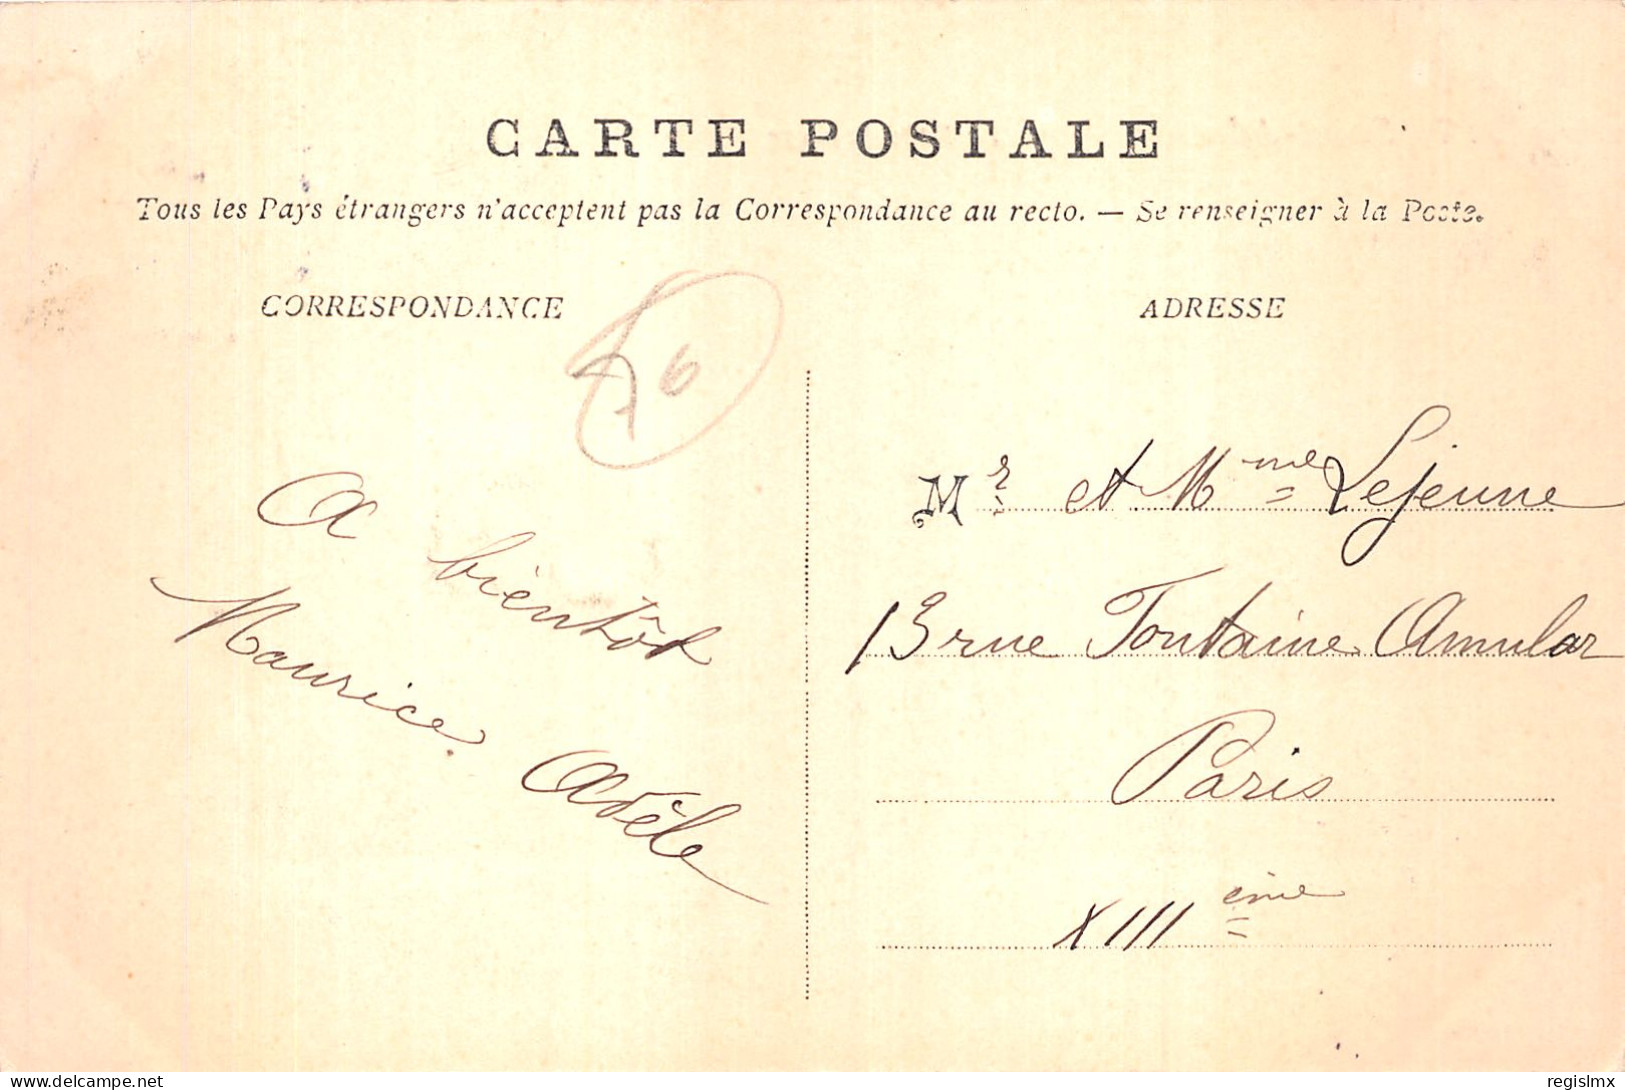 CARTE POSTALE
Tous les Pays étrangers n'acceptent pas la Correspondance au recto. — Se renseigner à la Poste.
CORRESPONDANCE
76
A bientôt
Maurice. Adèle
ADRESSE
Mr et Mme Lejeune
13 rue Fontaine Amular
Paris
XIIIème
delcampe.net
regislmx